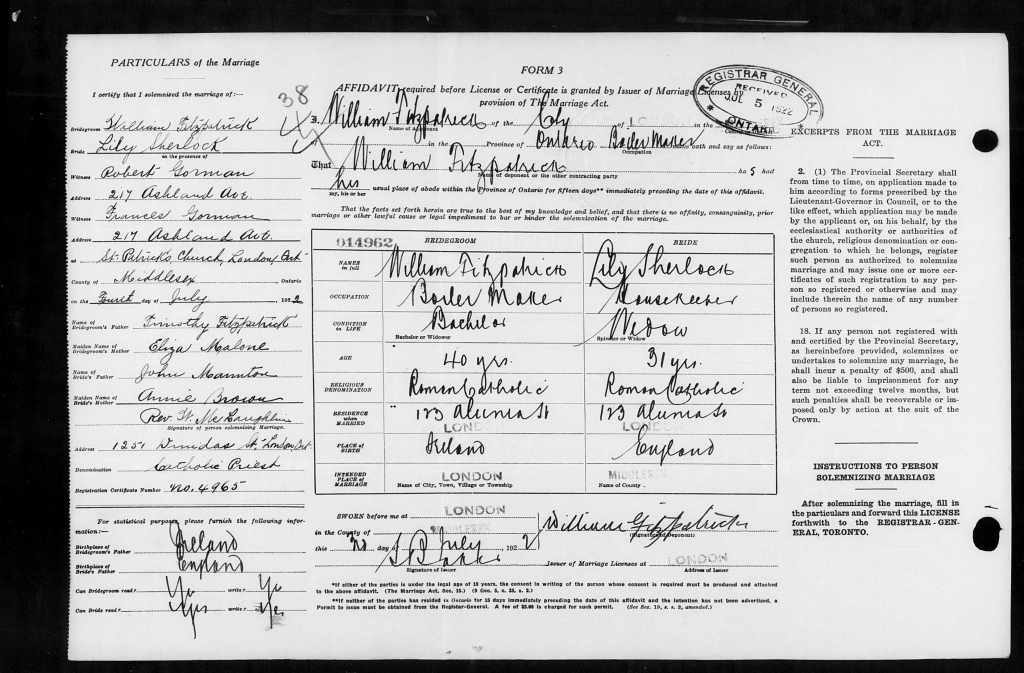 PARTICULARS of the Marriage
I certify that I solemnized the marriage of:—
Bridegroom William Fitzpatrick
Bride Lily Sherlock
in the presence of
Witness Robert Gorman
Address 217 Ashland Ave.
Witness Frances Gorman
Address 217 Ashland Ave.
at St. Patrick's Church, London, Ont
County of Middlesex Ontario
on the Fourth day of July 1922
Name of Bridegroom's Father Timothy Fitzpatrick
Maiden Name of Bridegroom's Mother Eliza Malone
Name of Bride's Father John
Maiden Name of Bride's Mother Annie Brown
Rev. W. McLaughlin
Signature of person solemnizing Marriage.
Address 1251 Dundas St. London, Ont.
Denomination Catholic Priest
Registration Certificate Number No. 4965
For statistical purposes, please furnish the following information:
Birthplace of Bridegroom's Father Ireland
Birthplace of Bride's Father England
Can Bridegroom read? Yes write? Yes
Can Bride read? Yes write? Yes
38
FORM 3
AFFIDAVIT required before License or Certificate is granted by Issuer of Marriage Licenses by
provision of The Marriage Act.
REGISTRAR GENERAL
RECEIVED
JUL 5 1922
ONTARIO
I, William Fitzpatrick of the City of in the
Name of Deponent
in the Province of Ontario Boiler Maker oath and say as follows:
Occupation
That William Fitzpatrick has had
Name of deponent or the other contracting party
his usual place of abode within the Province of Ontario for fifteen days** immediately preceding the date of this affidavit.
my, his or her
That the facts set forth herein are true to the best of my knowledge and belief, and that there is no affinity, consanguinity, prior
marriage or other lawful cause or legal impediment to bar or hinder the solemnization of the marriage.
014962 BRIDEGROOM BRIDE
NAMES in full William Fitzpatrick Lily Sherlock
OCCUPATION Boiler Maker Housekeeper
CONDITION IN LIFE Bachelor Widow
Bachelor or Widower Spinster or Widow
AGE 40 yrs. 31 yrs.
RELIGIOUS DENOMINATION Roman Catholic Roman Catholic
RESIDENCE when MARRIED 123 St 123 St
LONDON LONDON
PLACE OF BIRTH Ireland England
INTENDED PLACE OF MARRIAGE LONDON MIDDLESEX
Name of City, Town, Village or Township. Name of County.
SWORN before me at LONDON
in the County of MIDDLESEX William Fitzpatrick
(Signature of Deponent)
this day of July 1922
Signature of Issuer
Issuer of Marriage Licenses at LONDON
Address of Issuer
*If either of the parties is under the legal age of 18 years, the consent in writing of the person whose consent is required must be produced and attached
to the above affidavit. (The Marriage Act, Sec. 15.) (9 Geo. 5, c. 35, s. 2.)
**If neither of the parties has resided in Ontario for 15 days immediately preceding the date of this affidavit and the intention has not been advertised, a
Permit to issue must be obtained from the Registrar-General. A fee of $5.00 is charged for such permit. (See Sec. 19, s. s. 2, amended.)
EXCERPTS FROM THE MARRIAGE
ACT.
2. (1) The Provincial Secretary shall
from time to time, on application made to
him according to forms prescribed by the
Lieutenant-Governor in Council, or to the
like effect, which application may be made
by the applicant or, on his behalf, by the
ecclesiastical authority or authorities of
the church, religious denomination or con-
gregation to which he belongs, register
such person as authorized to solemnize
marriage and may issue one or more cer-
tificates of such registration to any per-
son so registered or otherwise and may
include therein the name of any number
of persons so registered.
18. If any person not registered with
and certified by the Provincial Secretary,
as hereinbefore provided, solemnizes or
undertakes to solemnize any marriage, he
shall incur a penalty of $500, and shall
also be liable to imprisonment for any
term not exceeding twelve months, but
such penalties shall be recoverable or im-
posed only by action at the suit of the
Crown.
INSTRUCTIONS TO PERSON
SOLEMNIZING MARRIAGE
After solemnizing the marriage, fill in
the particulars and forward this LICENSE
forthwith to the REGISTRAR-GEN-
ERAL, TORONTO.